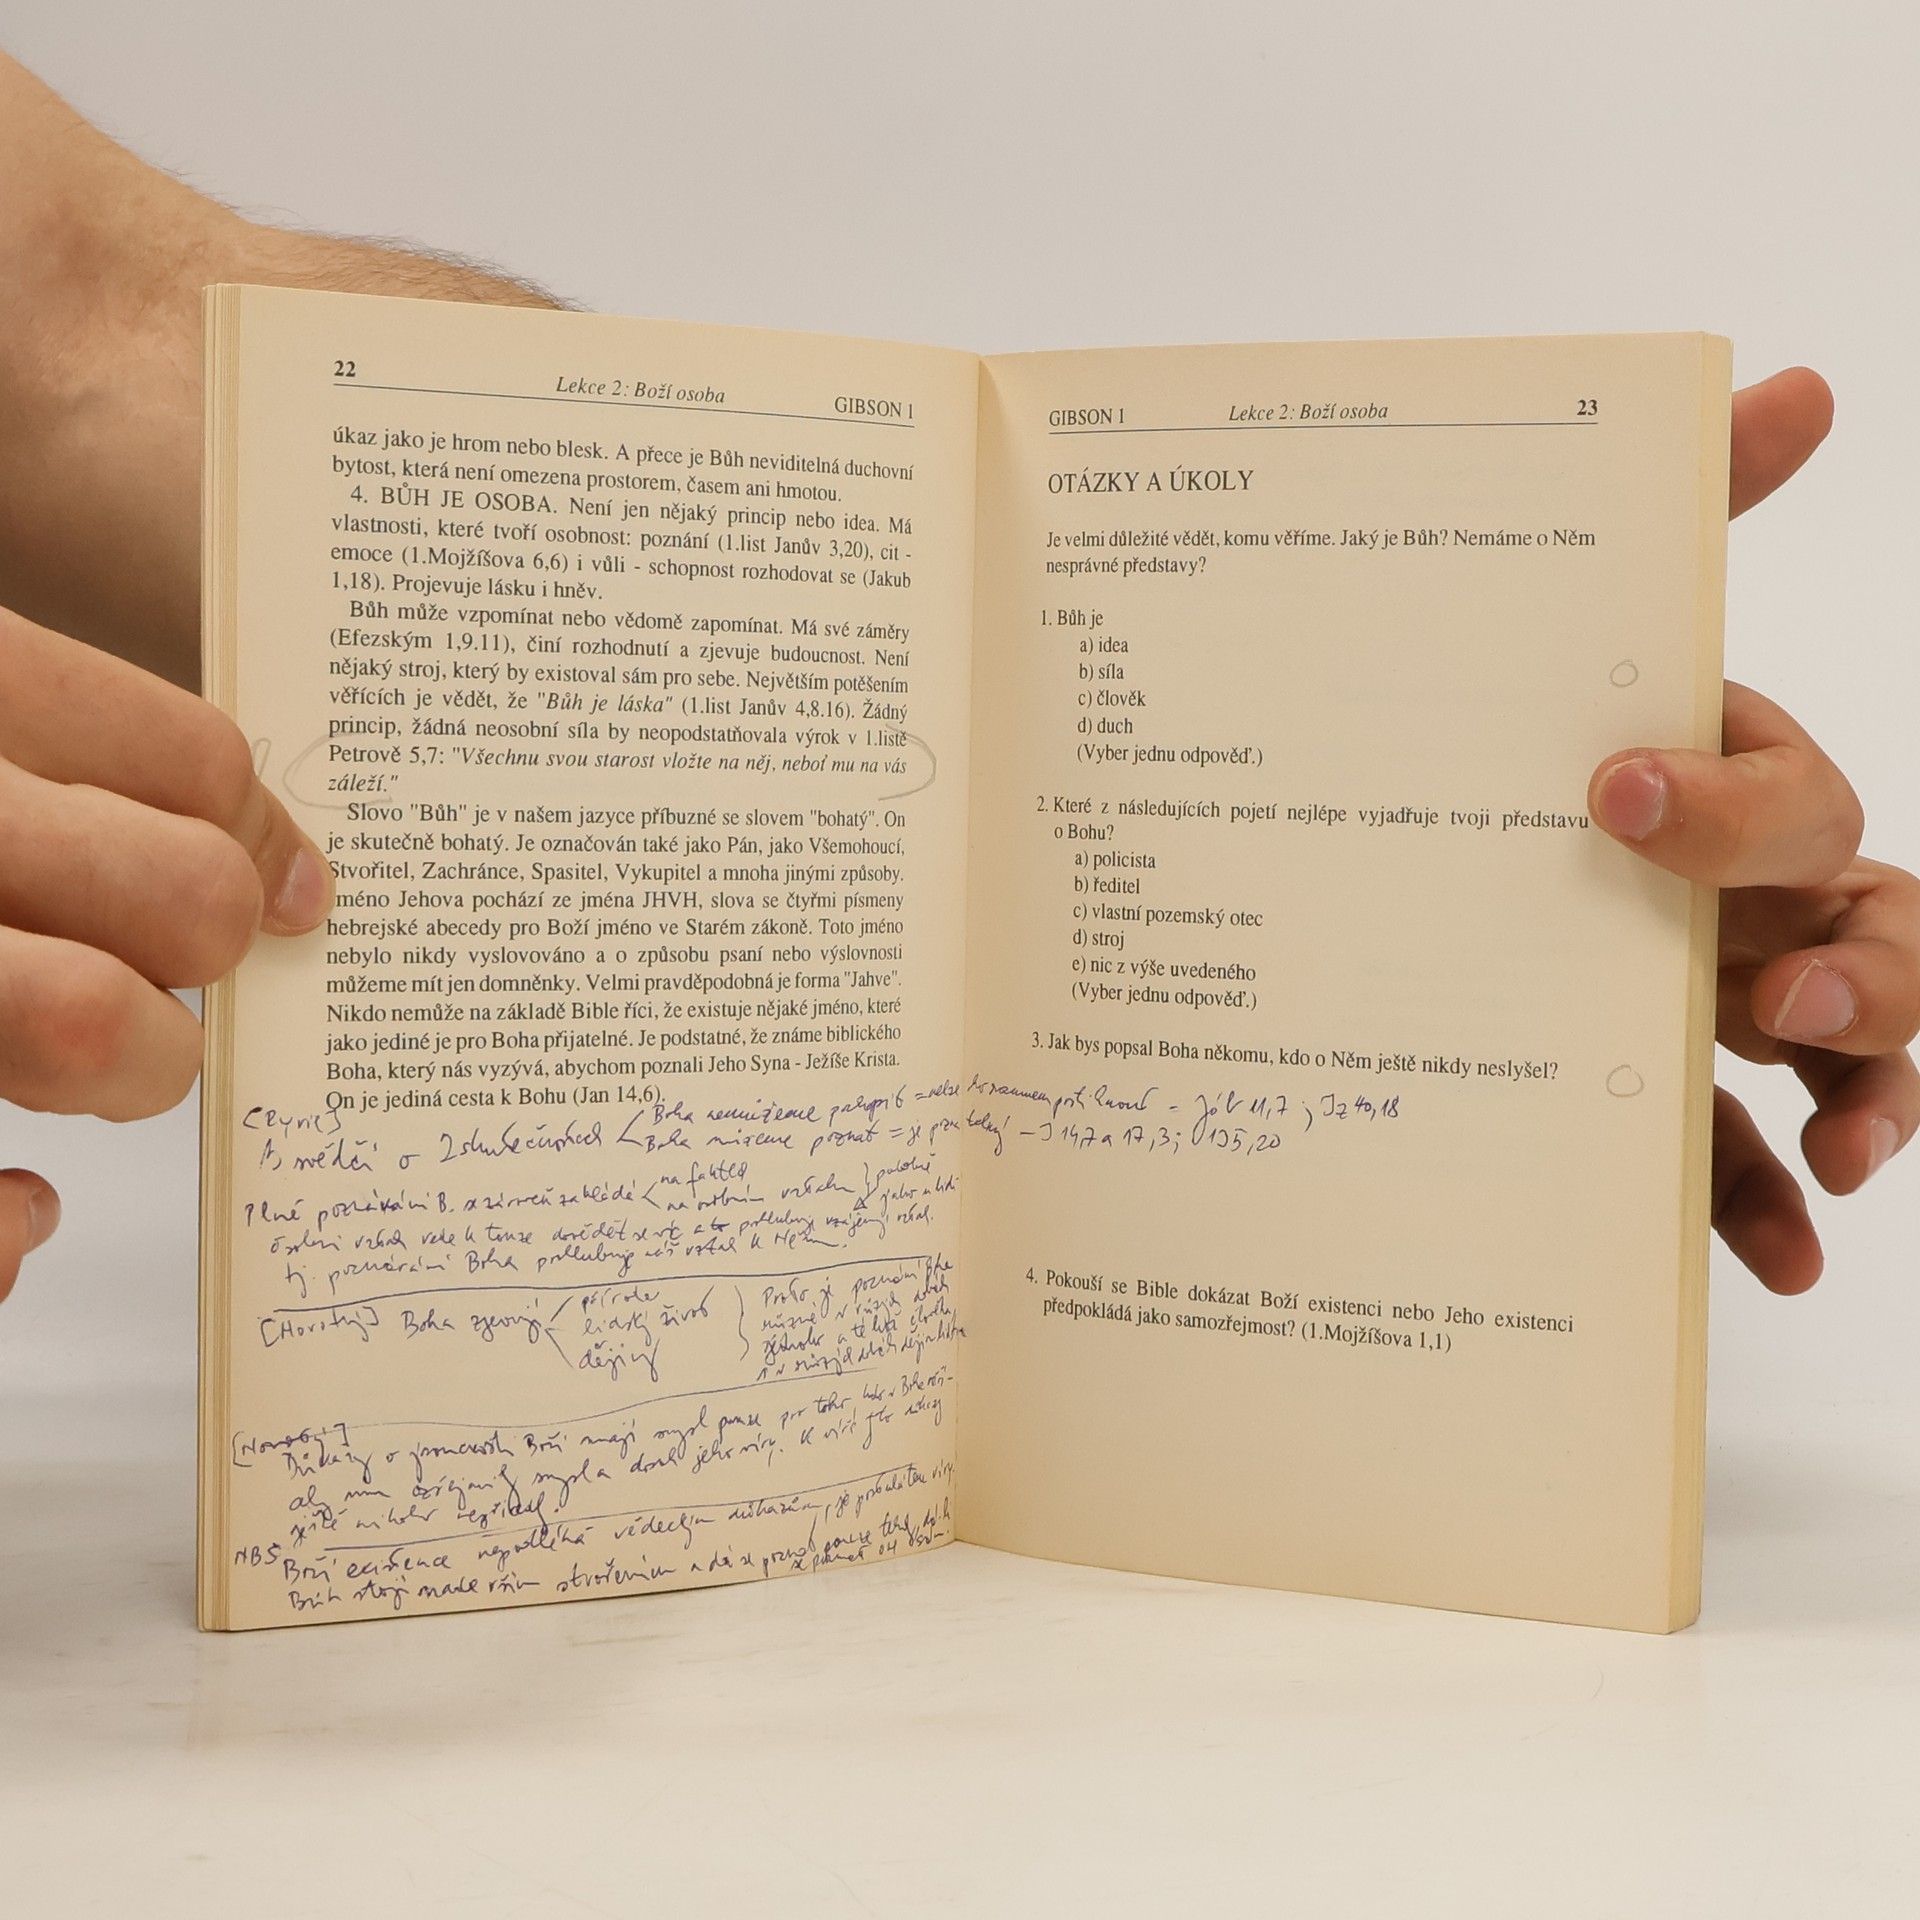 22
Lekce 2: Boží osoba
GIBSON 1
úkaz jako je hrom nebo blesk. A přece je Bůh neviditelná duchovní
bytost, která není omezena prostorem, časem ani hmotou.
4. BŮH JE OSOBA. Není jen nějaký princip nebo idea. Má
vlastnosti, které tvoří osobnost: poznání (1.list Janův 3,20), cit -
emoce (1.Mojžíšova 6,6) i vůli - schopnost rozhodovat se (Jakub
1,18). Projevuje lásku i hněv.
Bůh může vzpomínat nebo vědomě zapomínat. Má své záměry
(Efezským 1,9.11), činí rozhodnutí a zjevuje budoucnost. Není
nějaký stroj, který by existoval sám pro sebe. Největším potěšením
věřících je vědět, že "Bůh je láska" (1.list Janův 4,8.16). Žádný
princip, žádná neosobní síla by neopodstatňovala výrok v 1.listě
Petrově 5,7: "Všechnu svou starost vložte na něj, neboť mu na vás
záleží."
Slovo "Bůh" je v našem jazyce příbuzné se slovem "bohatý". On
je skutečně bohatý. Je označován také jako Pán, jako Všemohoucí,
Stvořitel, Zachránce, Spasitel, Vykupitel a mnoha jinými způsoby.
méno Jehova pochází ze jména JHVH, slova se čtyřmi písmeny
hebrejské abecedy pro Boží jméno ve Starém zákoně. Toto jméno
nebylo nikdy vyslovováno a o způsobu psaní nebo výslovnosti
můžeme mít jen domněnky. Velmi pravděpodobná je forma "Jahve".
Nikdo nemůže na základě Bible říci, že existuje nějaké jméno, které
jako jediné je pro Boha přijatelné. Je podstatné, že známe biblického
Boha, který nás vyzývá, abychom poznali Jeho Syna - Ježíše Krista.
On je jediná cesta k Bohu (Jan 14,6).
Boha nemůžeme pochopit = nelze ho rozumem postihnout - Jób 11,7 ; Iz 40,18
svědčí o 2 skutečnostech Boha můžeme poznat = je poznatelný - J 14,7 a 17,3; 1J 5,20
Plné poznávání B. zakládá na faktech
na osobním vztahu
Osobní vztah vede k touze dovědět se víc a to prohlubuje vzájemný vztah.
tj. poznávání Boha prohlubuje náš vztah k Němu.
[Novotný] Boha zjevují příroda
lidský život
dějiny
Proto je poznání Boha
různé v různých dobách
[Novotný]
Důkazy o jsoucnosti Boží mají smysl pouze pro toho, kdo v Boha věří -
aby mu ozřejmily smysl a dosah jeho víry. K víře tyto důkazy
ještě nikoho nepřivedly.
NBS Boží existence nepodléhá vědeckým důkazům, je postulátem víry.
Bůh stojí mimo stvořením a dá se poznat pouze tehdy,
GIBSON 1
Lekce 2: Boží osoba
23
OTÁZKY A ÚKOLY
Je velmi důležité vědět, komu věříme. Jaký je Bůh? Nemáme o Něm
nesprávné představy?
1. Bůh je
a) idea
b) síla
c) člověk
d) duch
(Vyber jednu odpověď.)
2. Které z následujících pojetí nejlépe vyjadřuje tvoji představu
o Bohu?
a) policista
b) ředitel
c) vlastní pozemský otec
d) stroj
e) nic z výše uvedeného
(Vyber jednu odpověď.)
3. Jak bys popsal Boha někomu, kdo o Něm ještě nikdy neslyšel?
4. Pokouší se Bible dokázat Boží existenci nebo Jeho existenci
předpokládá jako samozřejmost? (1.Mojžíšova 1,1)